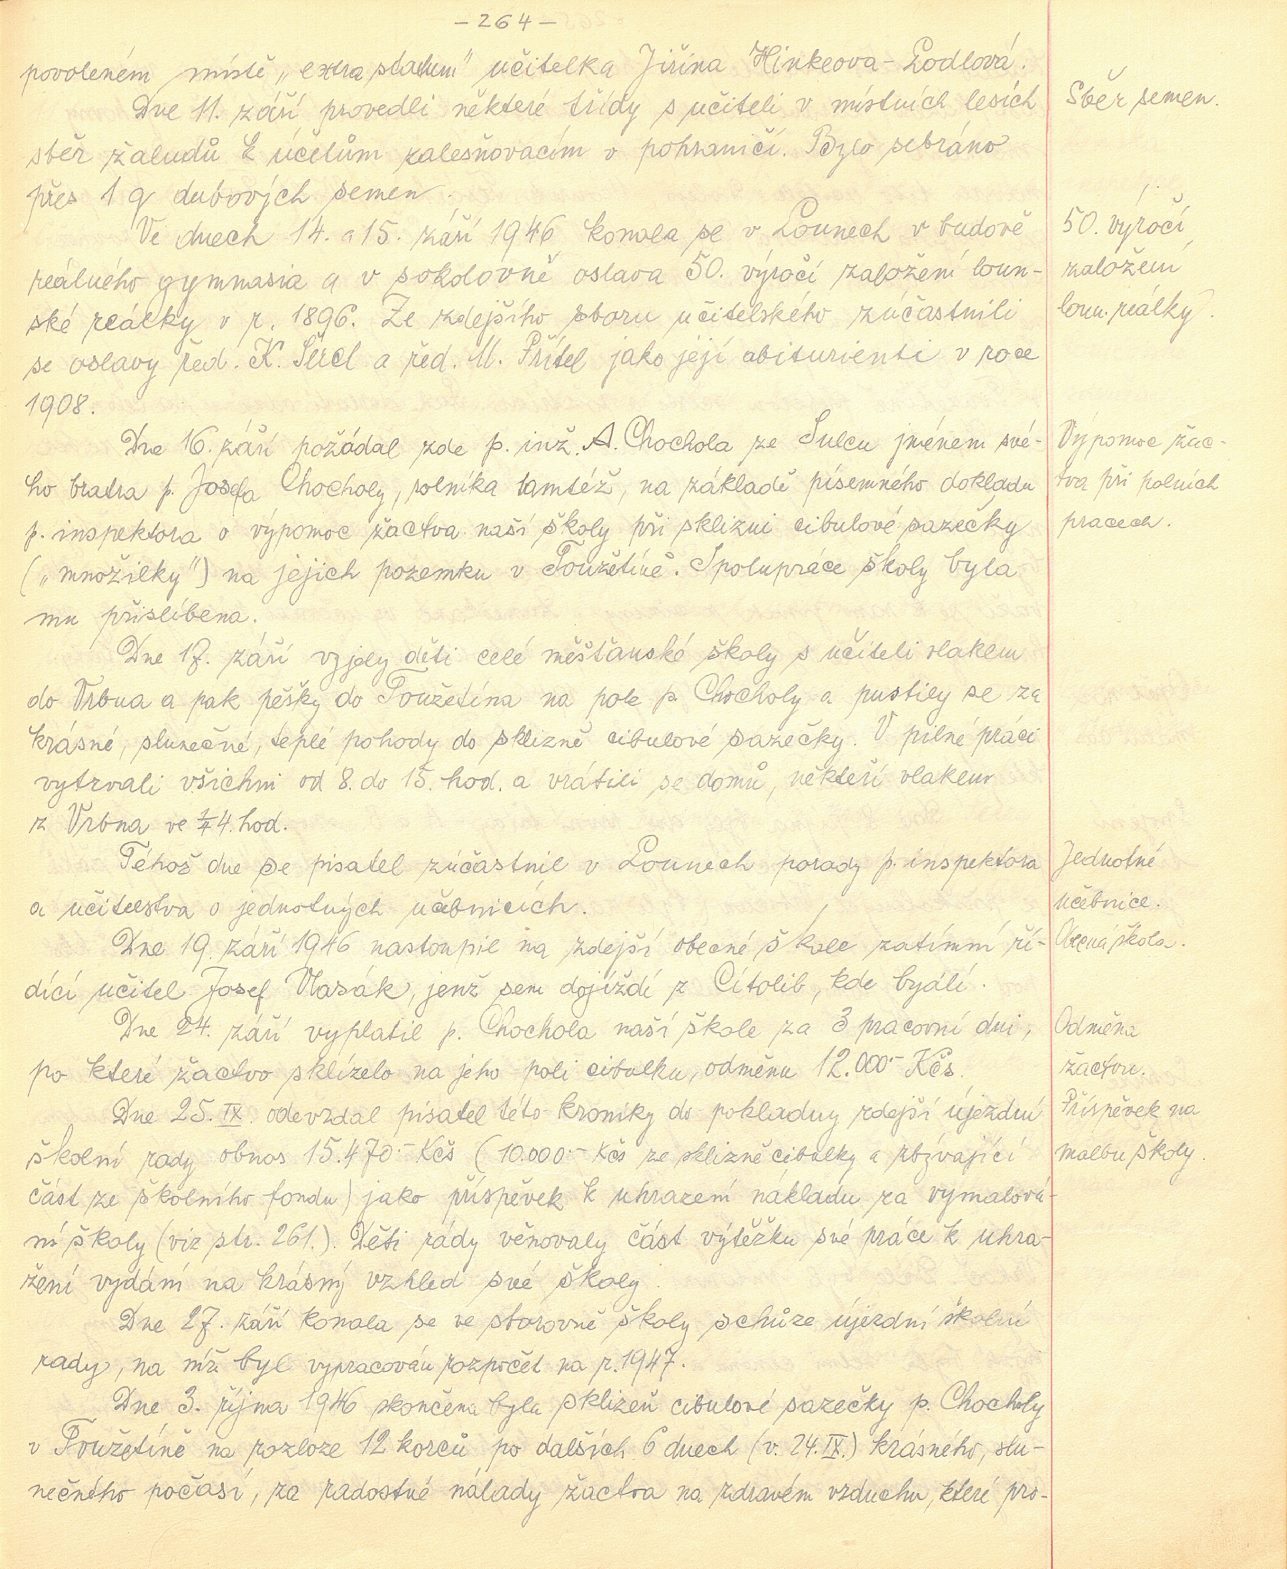 - 264 -
povoleném místě „extra statum" učitelka Jiřina Hinkeova-Podlová.
Dne 11. září provedli některé třídy s učiteli v místních lesích
Sběr semen.
sběr žaludů k účelům zalesňovacím v pohraničí. Bylo sebráno
přes 1 q dubových semen.
Ve dnech 14. a 15. září 1946 konala se v Lounech v budově
50. výročí
reálného gymnasia a v sokolovně oslava 50. výročí založení loun-
založení
ské reálky v r. 1896. Ze zdejšího sboru učitelského zúčastnili
loun. reálky.
se oslavy řed. K. Šércl a řed. M. Přítel jako její abiturienti v roce
1908.
Dne 16. září požádal zde p. inž. A. Chochola ze Sulce jménem své-
Výpomoc žac-
ho bratra p. Josefa Chocholy, rolníka tamtéž, na základě písemného dokladu
tva při polních
p. inspektora o výpomoc žactva naší školy při sklizni cibulové sazečky
pracech.
(„množilky") na jejich pozemku v Toužetíně. Spolupráce školy byla
mu přislíbena.
Dne 17. září vyjely děti celé měšťanské školy s učiteli vlakem
do Vrbna a pak pěšky do Toužetína na pole p. Chocholy a pustily se za
krásné, slunečné, teplé pohody do sklizně cibulové sazečky. V pilné práci
vytrvali všichni od 8. do 15. hod. a vrátili se domů, někteří vlakem
z Vrbna ve 4. hod.
Téhož dne se pisatel zúčastnil v Lounech porady p. inspektora
Jednotné
a učitelstva o jednotných učebnicích.
učebnice.
Dne 19. září 1946 nastoupil na zdejší obecné škole zatímní ří-
Obecná škola.
dící učitel Josef Vlasák, jenž sem dojíždí z Cítolib, kde bydlí.
Dne 24. září vyplatil p. Chochola naší škole za 3 pracovní dni,
Odměna
po které žactvo sklízelo na jeho poli cibulku, odměnu 12.000·- Kčs.
žactvu.
Dne 25. IX. odevzdal pisatel této kroniky do pokladny zdejší újezdní
Příspěvek na
školní rady obnos 15.470·- Kčs (10.000·- Kčs ze sklizně cibulky a zbývající
malbu školy.
část ze školního fondu) jako příspěvek k uhrazení nákladu za vymalová-
ní školy (viz str. 261.). Děti rády věnovaly část výtěžku své práce k uhra-
žení vydání na krásný vzhled své školy.
Dne 27. září konala se ve sborovně školy schůze újezdní školní
rady, na níž byl vypracován rozpočet na r. 1947.
Dne 3. října 1946 skončena byla sklizeň cibulové sazečky p. Chocholy
v Toužetíně na rozloze 12 korců po dalších 6 dnech (v. 24. IX.) krásného, slu-
nečného počasí, za radostné nálady žactva na zdravém vzduchu, které pro-